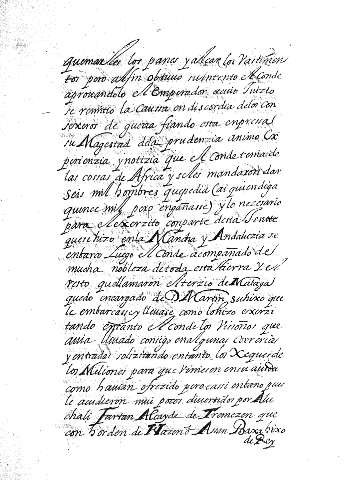 quemarles los panes y alçar los Vastimen
tos pero al fin obtuvo su intento el Conde
aprovandolo el Emperador a cuio Juizio
se remitio la Caussa en discordia de los con
sexeros de guerra fiando esta empressa
su Magestad de la prudenzia animo Ex
perienzia y notizia que el Conde tenia de
las cosas de Africa y se les mandaron dar
seis mil hombres que pedia (ai quien diga
quince mil pero engañasse) y lo necesario
para el exerzito con parte desta Jente
que se hizo en la Mancha y Andaluzia se
embarco Luego el Conde acompañado de
mucha nobleza de toda esta tierra y el
resto que llamaron el terzio de Malaga
quedo encargado de D. Martin su hixo que
le embarcase y llevase como lo hizo exerzi
tando entanto el Conde los Visoños que
avia llevado consigo en algunas Correrias
y entradas solizitando entanto los Xeques de
los Meliones para que viniesen en su aiuda
como havian ofrezido pero casi en bano pues
le acudieron mui pocos divertidos por Alu
chali Tartan Alcayde de Tremezen que
con horden de Hazen o Asan Baxa hixo
de Rey